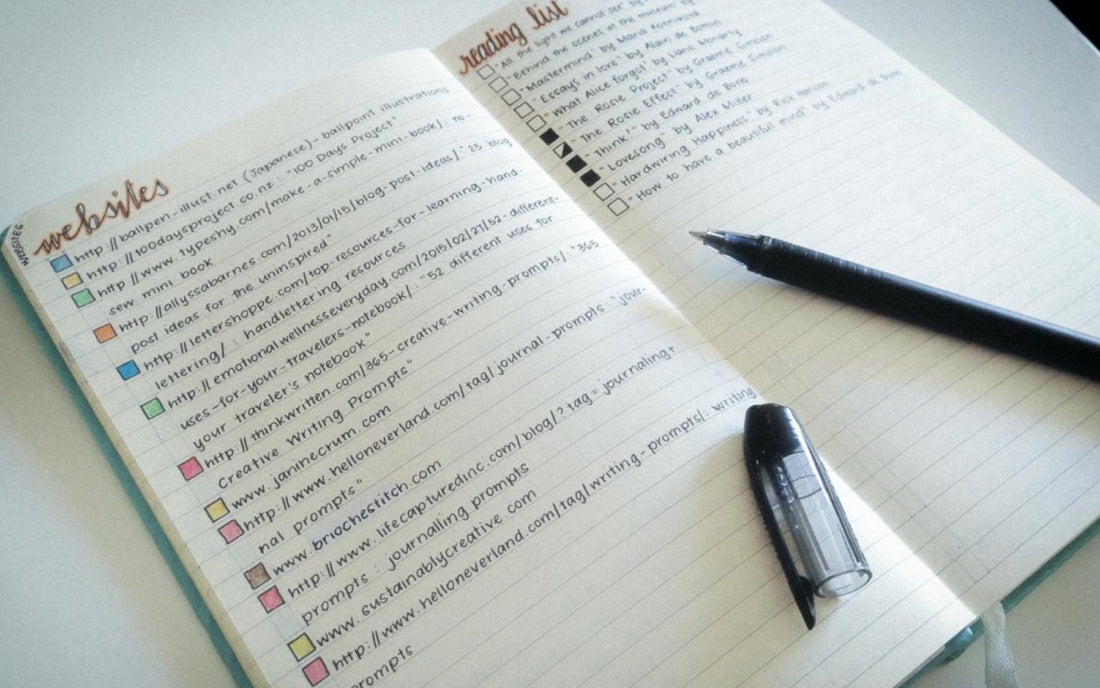 WEBSITES
websites
http://ballpen-illust.net (Japanese) - ballpoint illustrations
http://100daysproject.co.nz : "100 Days Project"
http://www.typeshy.com/make-a-simple-mini-book/ : no-
sew mini book
http://allyssabarnes.com/2013/01/15/blog-post-ideas/ : "25 blog
post ideas for the uninspired"
http://lettershoppe.com/top-resources-for-learning-hand-
lettering/ : handlettering resources
http://emotionalwellnesseveryday.com/2015/02/27/52-different-
uses-for-your-travelers-notebook/ : "52 different uses for
your traveler's notebook"
http://thinkwritten.com/365-creative-writing-prompts/ : "365
Creative Writing Prompts"
www.janinecrum.com
http://www.helloneverland.com/tag/journal-prompts : "jour-
nal prompts"
www.briochestitch.com
http://www.lifecapturedinc.com/blog/?tag=journaling+
prompts : journalling prompts
www.sustainablycreative.com
http://www.helloneverland.com/tag/writing-prompts/ : writing
prompts
reading list
"All the light we cannot see" by
"Behind the scenes at the museum" by
"Mastermind" by Maria Konnikova
"Essays in love" by Alain de Botton
"What Alice forgot" by Liane Moriarty
"The Rosie Project" by Graeme Simsion
"The Rosie Effect" by Graeme Simsion
"Think!" by Edward de Bono
"Lovesong" by Alex Miller
"Hardwiring Happiness" by Rick Hanson
"How to have a beautiful mind" by Edward de Bono